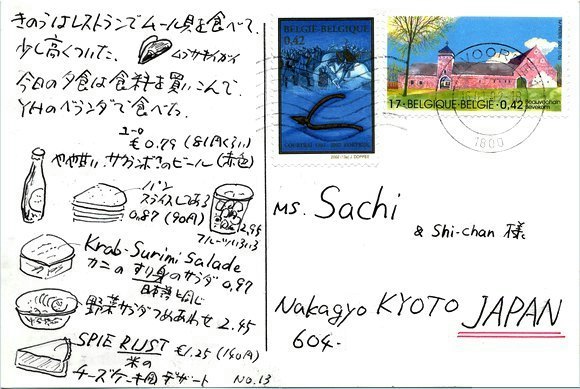 きのうはレストランでムール貝を食べて、
少し高くついた。
ムラサキイガイ
今日の夕食は食料を買いこんで、
YHのベランダで食べた。
ユーロ
€0.79 (81円くらい)
やや甘い サクランボのビール (赤色)
パン
スライスしてある
0.87 (90円)
2.95
フルーツいろいろ
Krab-Surimi Salade
カニの すり身のサラダ 0.97
日本語と同じ
野菜サラダつめあわせ 2.45
SPIE RIJST €1.25 (140円)
米の
チーズケーキ風デザート
No.13
BELGIE-BELGIQUE
0,42
COURTRAI 1302-2002 KORTRIJK
2002
17 - BELGIQUE-BELGIË - 0,42
Beauvechain
Bevekom
NOOR
1800
Ms. Sachi
& Shi-chan 様
Nakagyo KYOTO JAPAN
604-